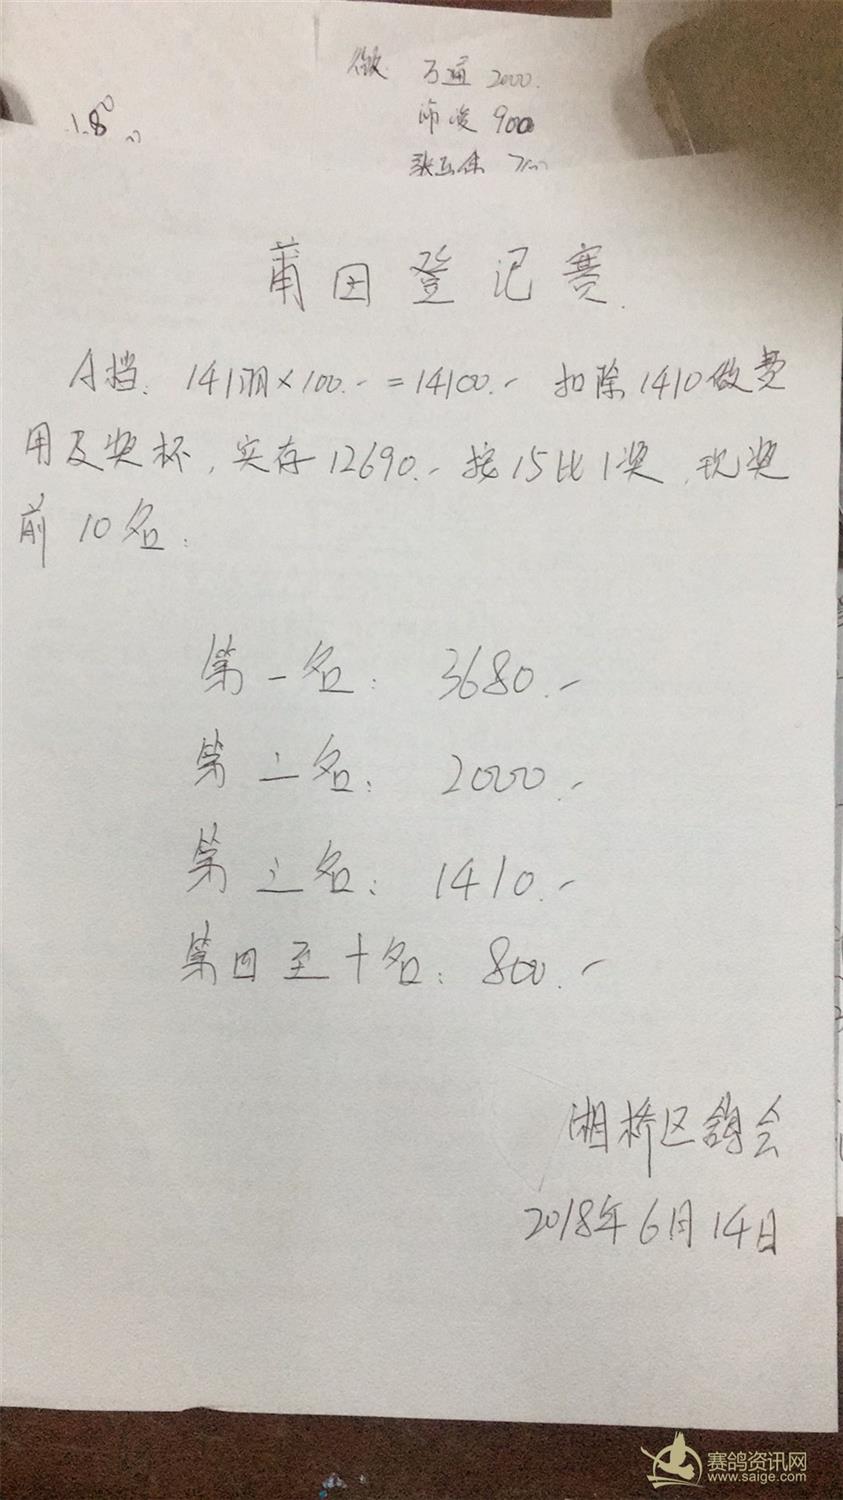 做 万通 2000.
沛浚 900
1.8
莆田登记赛.
A挡: 141羽×100.- = 14100.- 扣除1410做费
用及奖杯, 实存12690.- 按15比1奖, 现奖
前10名:
第一名: 3680.-
第二名: 2000.-
第三名: 1410.-
第四至十名: 800.-
湘桥区鸽会
2018年6月14日
赛鸽资讯网
www.saige.com